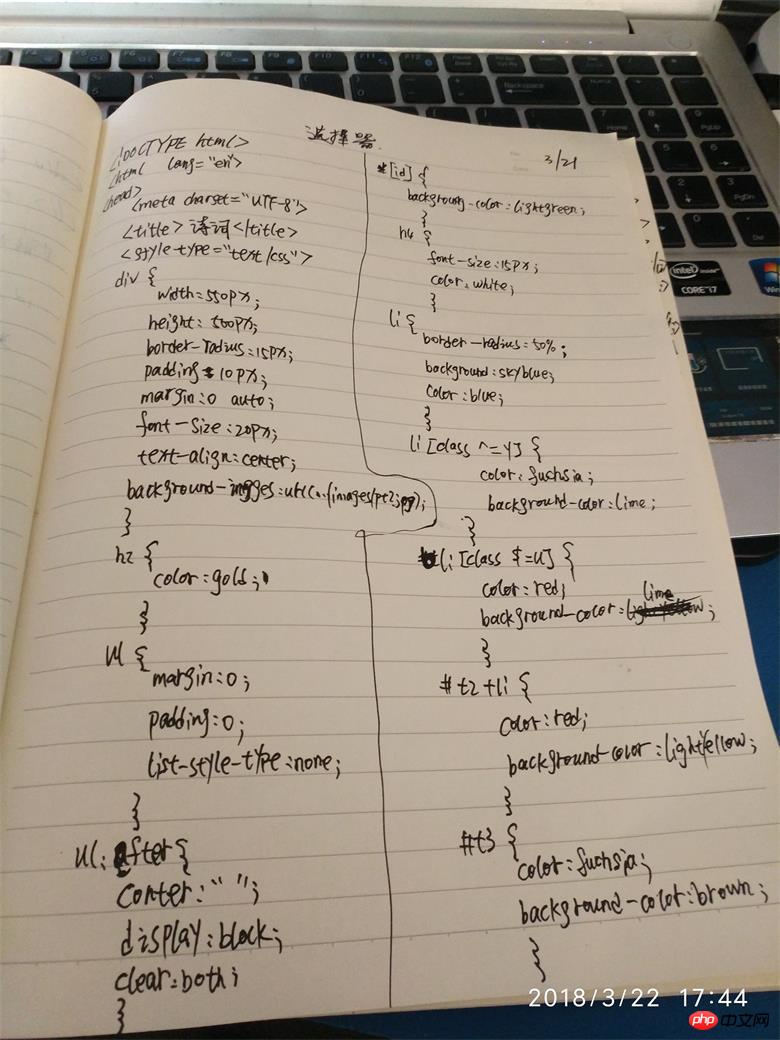 选择器
3/21
<!DOCTYPE html>
<html lang="en">
<head>
<meta charset="UTF-8">
<title>诗词</title>
<style type="text/css">
div {
width=550px;
height: 500px;
border-radius=15px;
padding: 10px;
margin:0 auto;
font-size:20px;
text-align:center;
}
h2 {
color:gold;
}
ul {
margin:0;
padding:0;
list-style-type:none;
}
ul:after{
conter:“ ”;
display:block;
clear:both;
}
*[id] {
background-color:lightgreen;
}
h4 {
font-size:15px;
color:white;
}
li {
border-radius:50%;
background:skyblue;
color:blue;
}
li [class ^=y] {
color:fuchsia;
background-color:lime;
}
li [class $=u] {
color:red;
background-color:lime;
}
#t2+li {
color:red;
background-color:lightyellow;
}
#t3 {
color:fuchsia;
background-color:brown;
}
Backspace
intel inside
CORE i7
2018/3/22 17:44
php 中文网